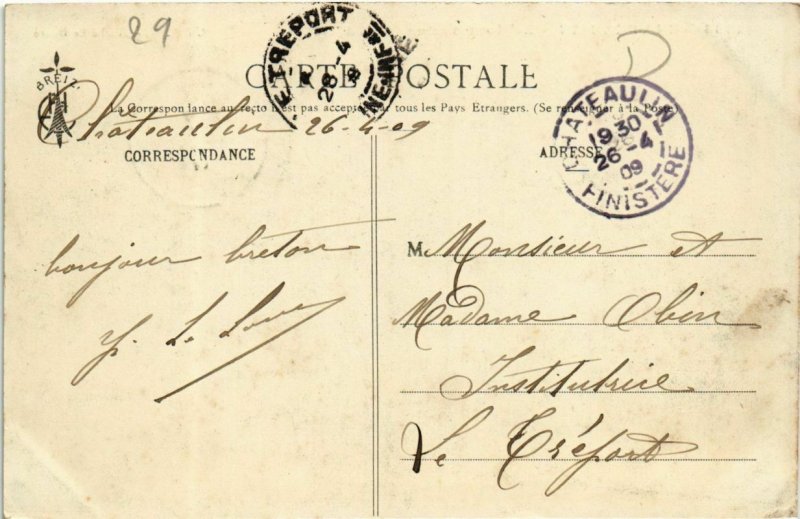 29
BREIZ
CARTE POSTALE
La Correspondance au recto n'est pas acceptée par tous les Pays Etrangers. (Se renseigner à la Poste)
LE TREPORT
28-4
CHATEAULIN
19 30
26-4
09
FINISTERE
Châteaulin 26-4-09
CORRESPONDANCE
ADRESSE
bonjour breton
M Monsieur et
Madame Obin
Institutrice
Le Tréport